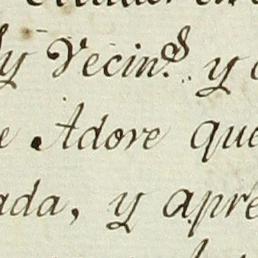 y Vecin.s y
e Adore que
ada, y apre